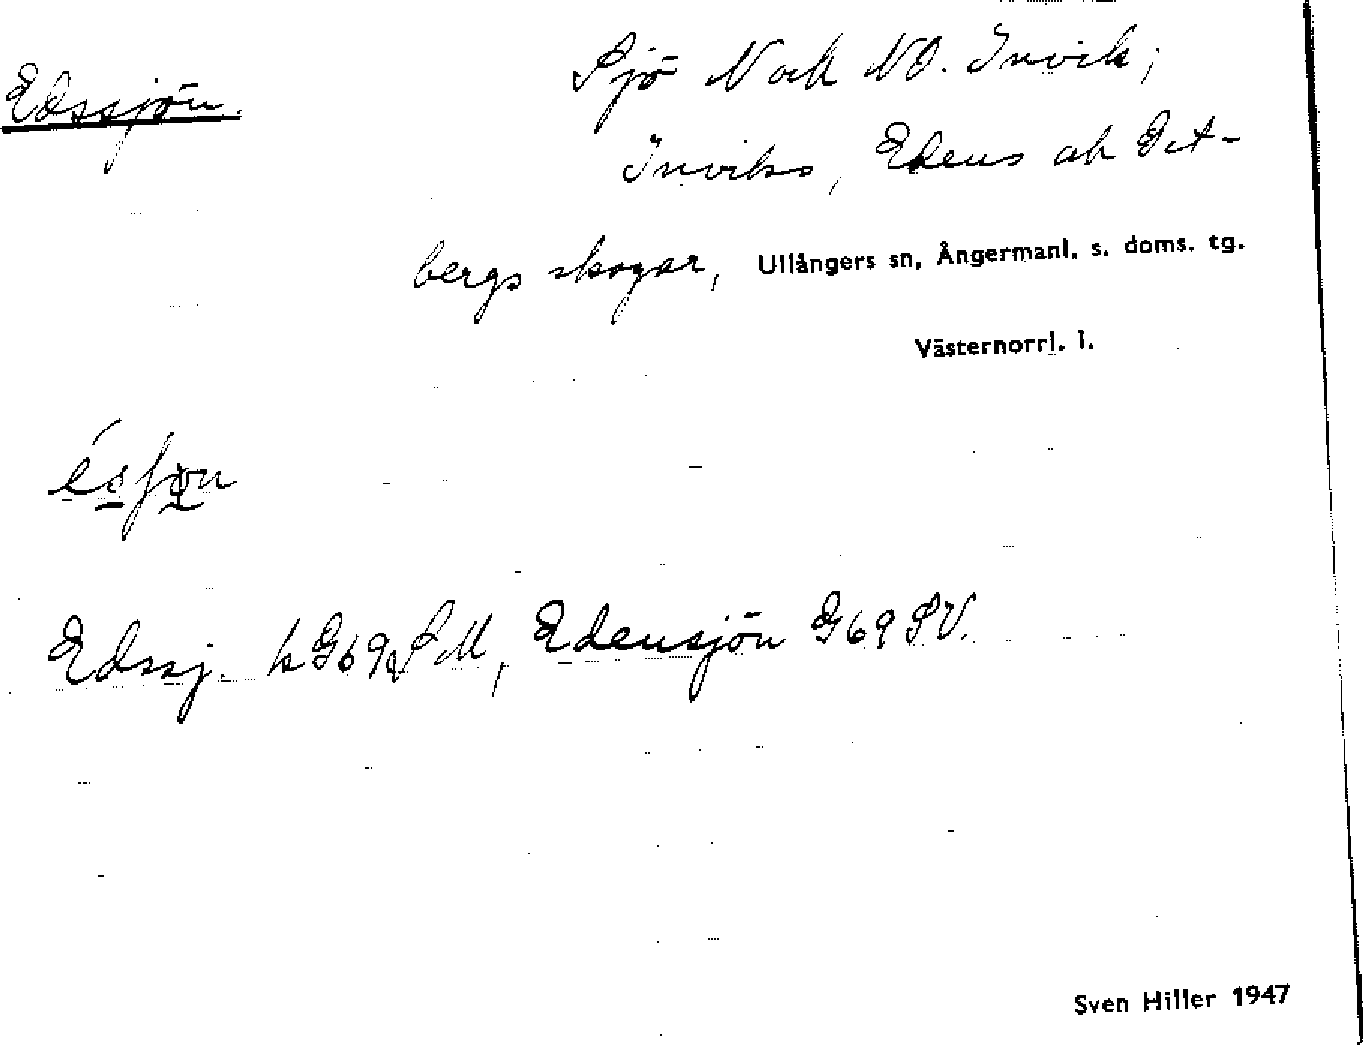 Edssjön.
Sjö N och NO. Invik;
Inviks, Edens och Get-
bergs skogar, Ullångers sn, Ångermanl. s. doms. tg.
Västernorrl. l.
Edssj. k G69SM, Edensjön G69SV.
Sven Hiller 1947